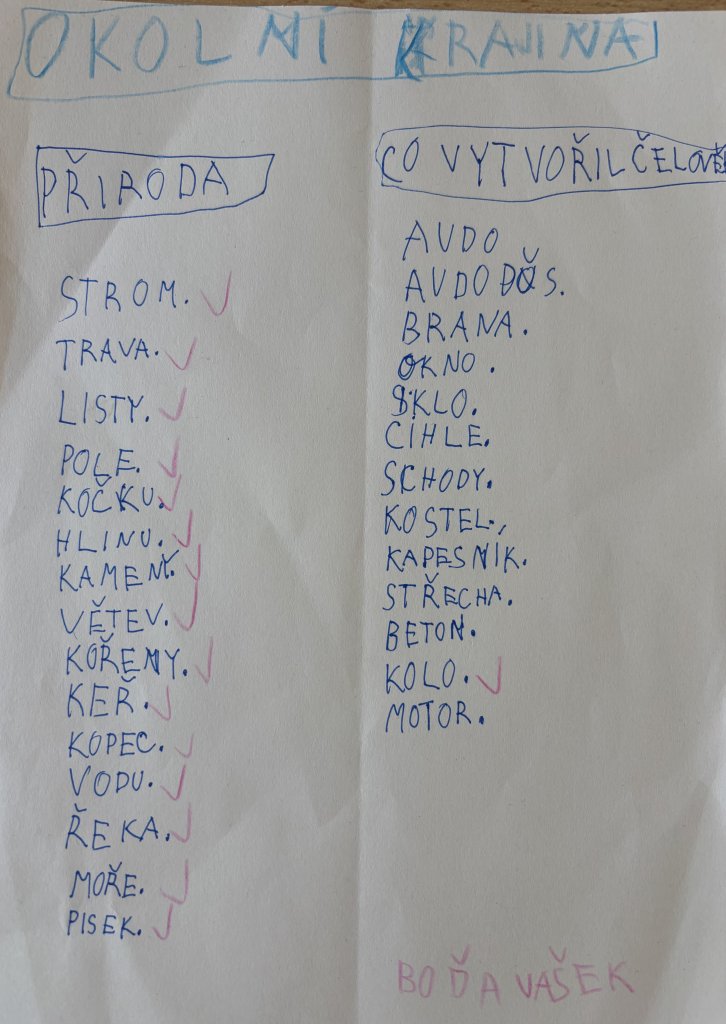 OKOLNÍ KRAJINA
PŘIRODA
STROM.
TRAVA.
LISTY.
POLE.
KOČKU.
HLINU.
KAMENŤ.
VĚTEV.
KOŘENY.
KEŘ.
KOPEC.
VODU.
ŘEKA.
MOŘE.
PISEK.
CO VYTVOŘIL ČELOVĚ
AUDO
AUDODŮS.
BRANA.
OKNO.
SKLO.
CIHLE.
SCHODY.
KOSTEL.,
KAPESNIK.
STŘECHA.
BETON.
KOLO.
MOTOR.
BOĎA VAŠEK